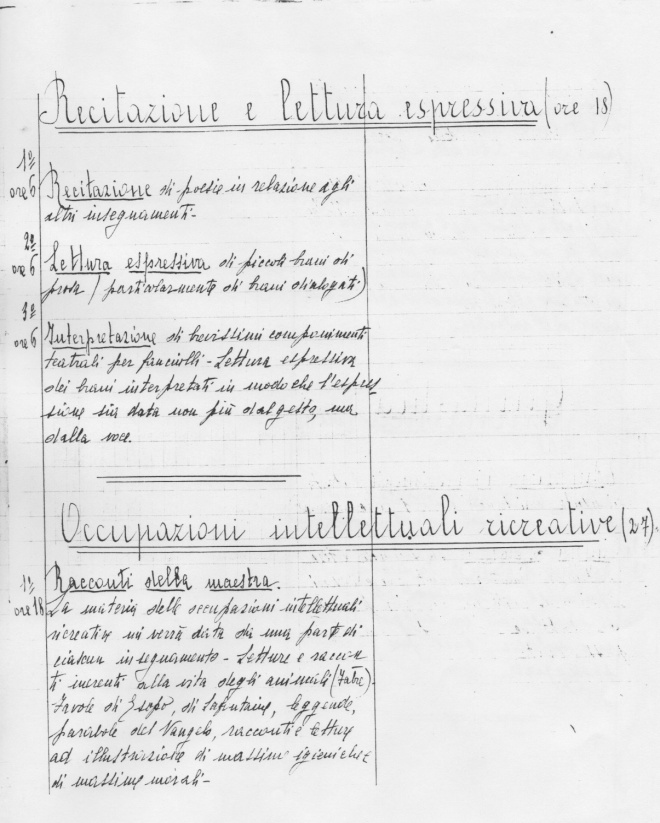 Recitazione e lettura espressiva (ore 18)
1º
ore 6
Recitazione di poesie in relazione agli
altri insegnamenti-
2º
ore 6
Lettura espressiva di piccoli brani di
prosa (particolarmente di brani dialogati)
3º
ore 6
Interpretazione di brevissimi componimenti
teatrali per fanciulli - Lettura espressiva
dei brani interpretati in modo che l'espres
sione sia data non più dal gesto, ma
dalla voce.
Occupazioni intellettuali ricreative (27).
1º
ore 18
Racconti della maestra.
La materia delle occupazioni intellettuali
ricreative mi verrà data da una parte di
ciascun insegnamento - Letture e raccon
ti inerenti alla vita degli animali (Fabre).
Favole di Esopo, di Lafontaine, leggende,
parabole del Vangelo, racconti e letture
ad illustrazione di massime igieniche e
di massime morali-